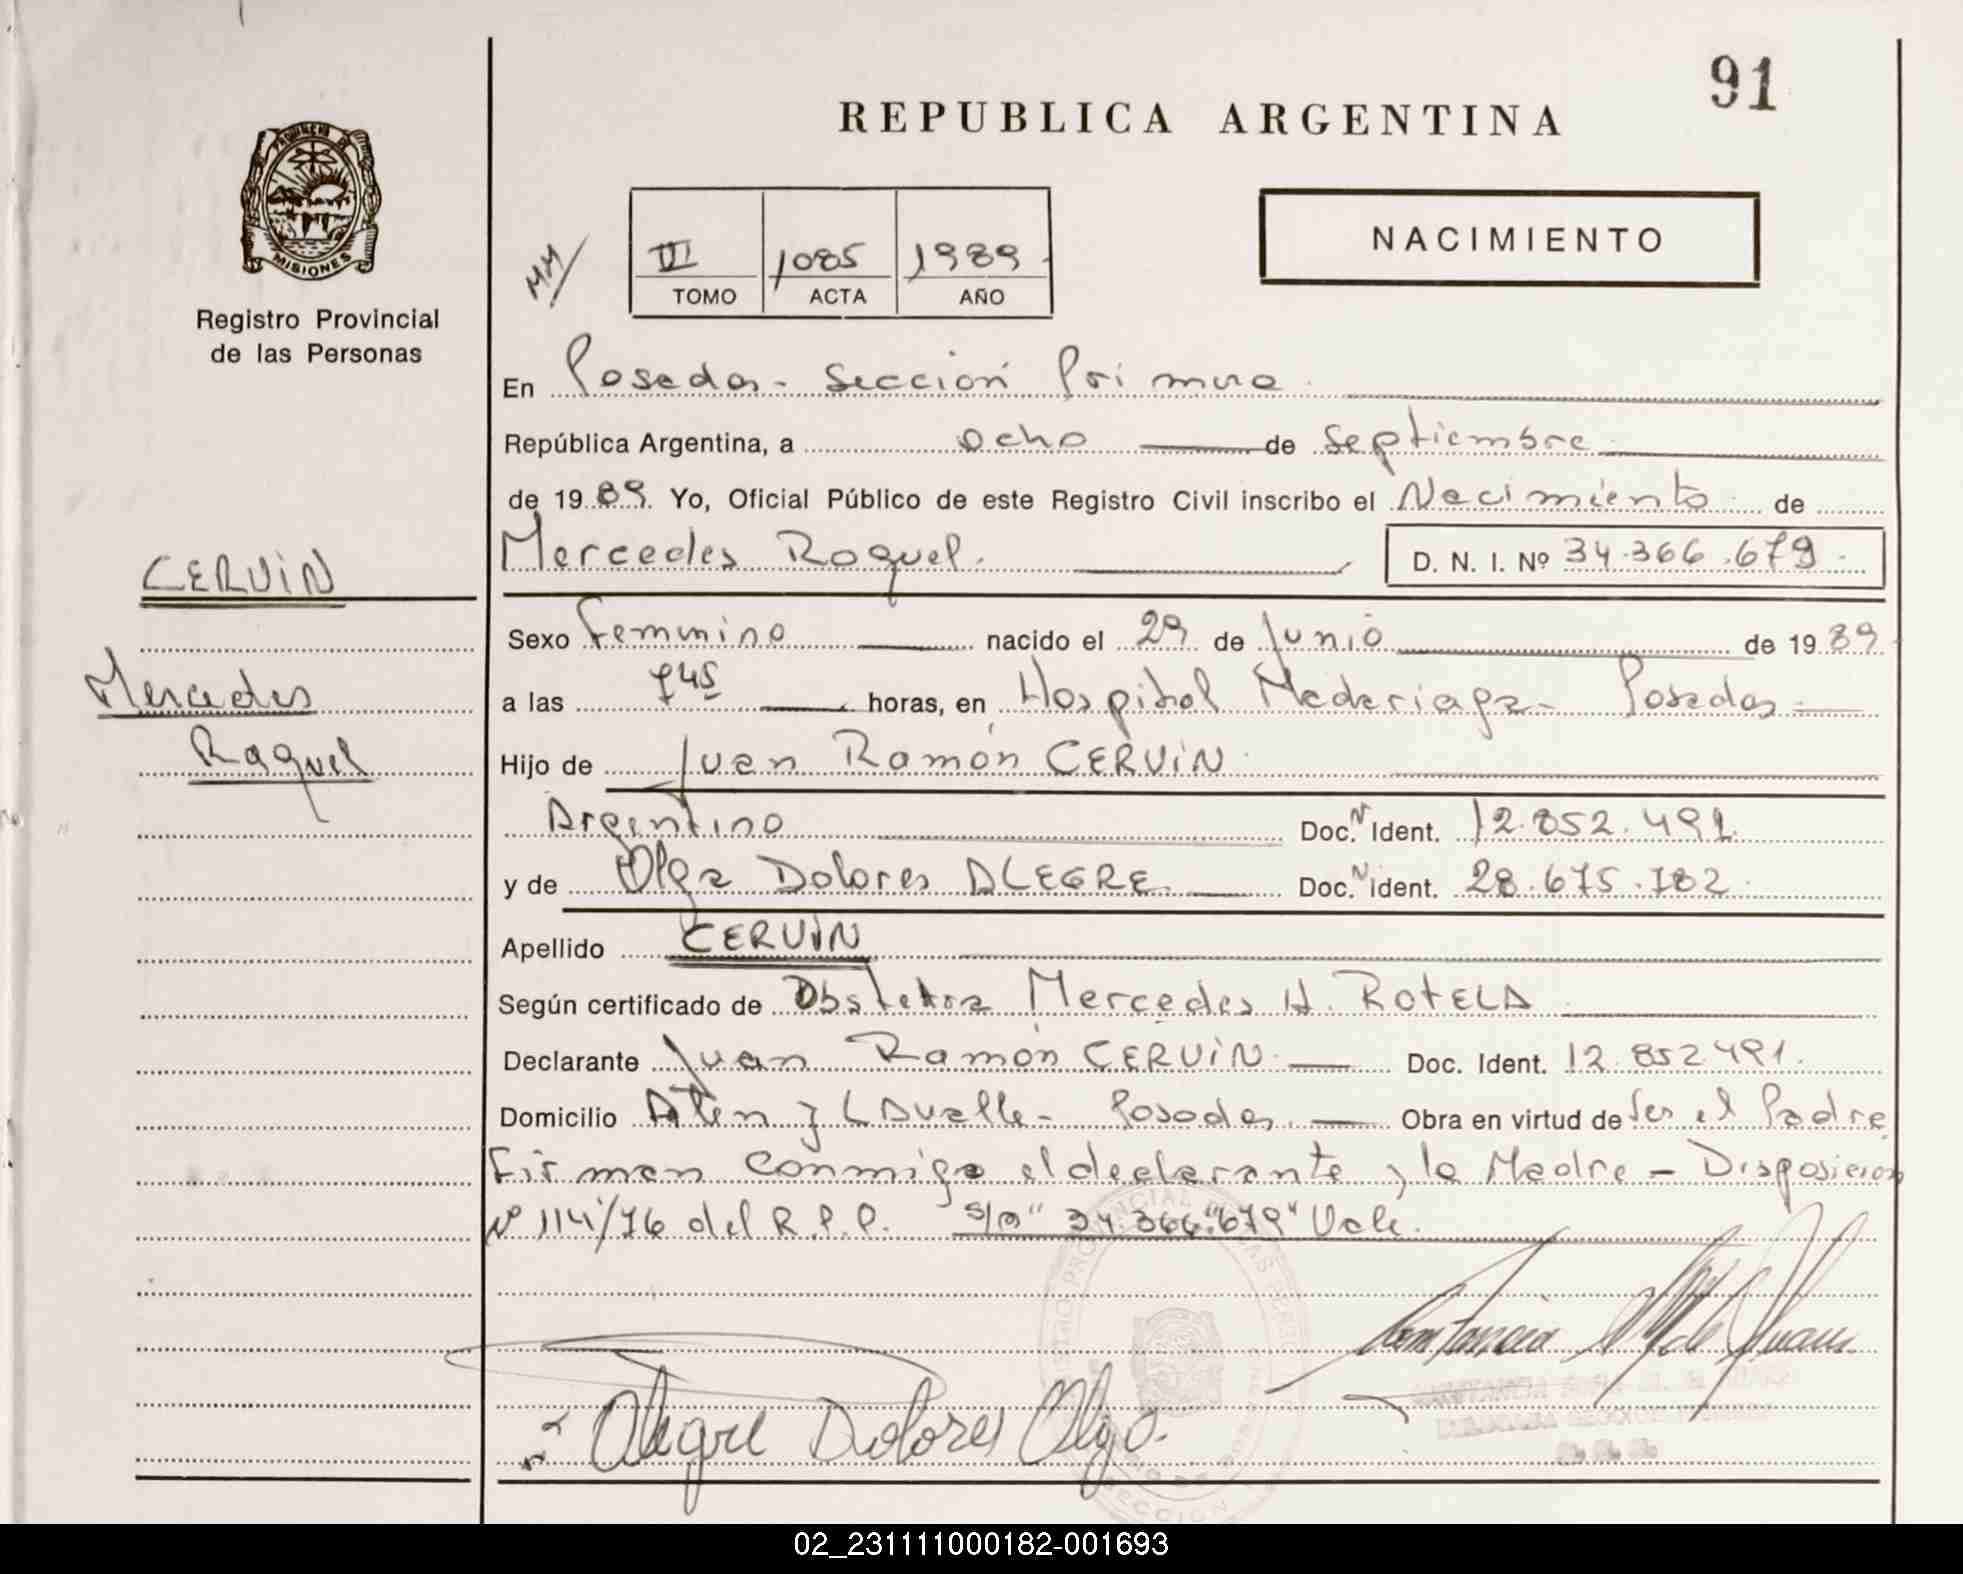 91
REPUBLICA ARGENTINA
PROVINCIA DE
MISIONES
Registro Provincial
de las Personas
MM/
III 1085 1989
TOMO ACTA AÑO
NACIMIENTO
En Posadas - Sección Primera
República Argentina, a ocho de Septiembre
de 1989. Yo, Oficial Público de este Registro Civil inscribo el Nacimiento de
Mercedes Raquel. D. N. I. Nº 34.366.679
CERVIN
Sexo Femenino nacido el 29 de Junio de 1989
Mercedes
a las 745 horas, en Hospital Madariaga - Posadas
Raquel
Hijo de Juan Ramón CERVIN
Argentino Doc. N Ident. 12.852.491
y de Olga Dolores ALEGRE Doc. N Ident. 28.675.782
Apellido CERVIN
Según certificado de Obstetra Mercedes H. ROTELA
Declarante Juan Ramón CERVIN Doc. Ident. 12.852.491.
Domicilio y LAvalle - Posadas. Obra en virtud de Ser el Padre
Firman conmigo el declarante y la Madre - Disposición
Nº 114/76 del R.P.P. S/a "34.366."679" Vale.
Alegre Dolores Olga.
02_231111000182-001693